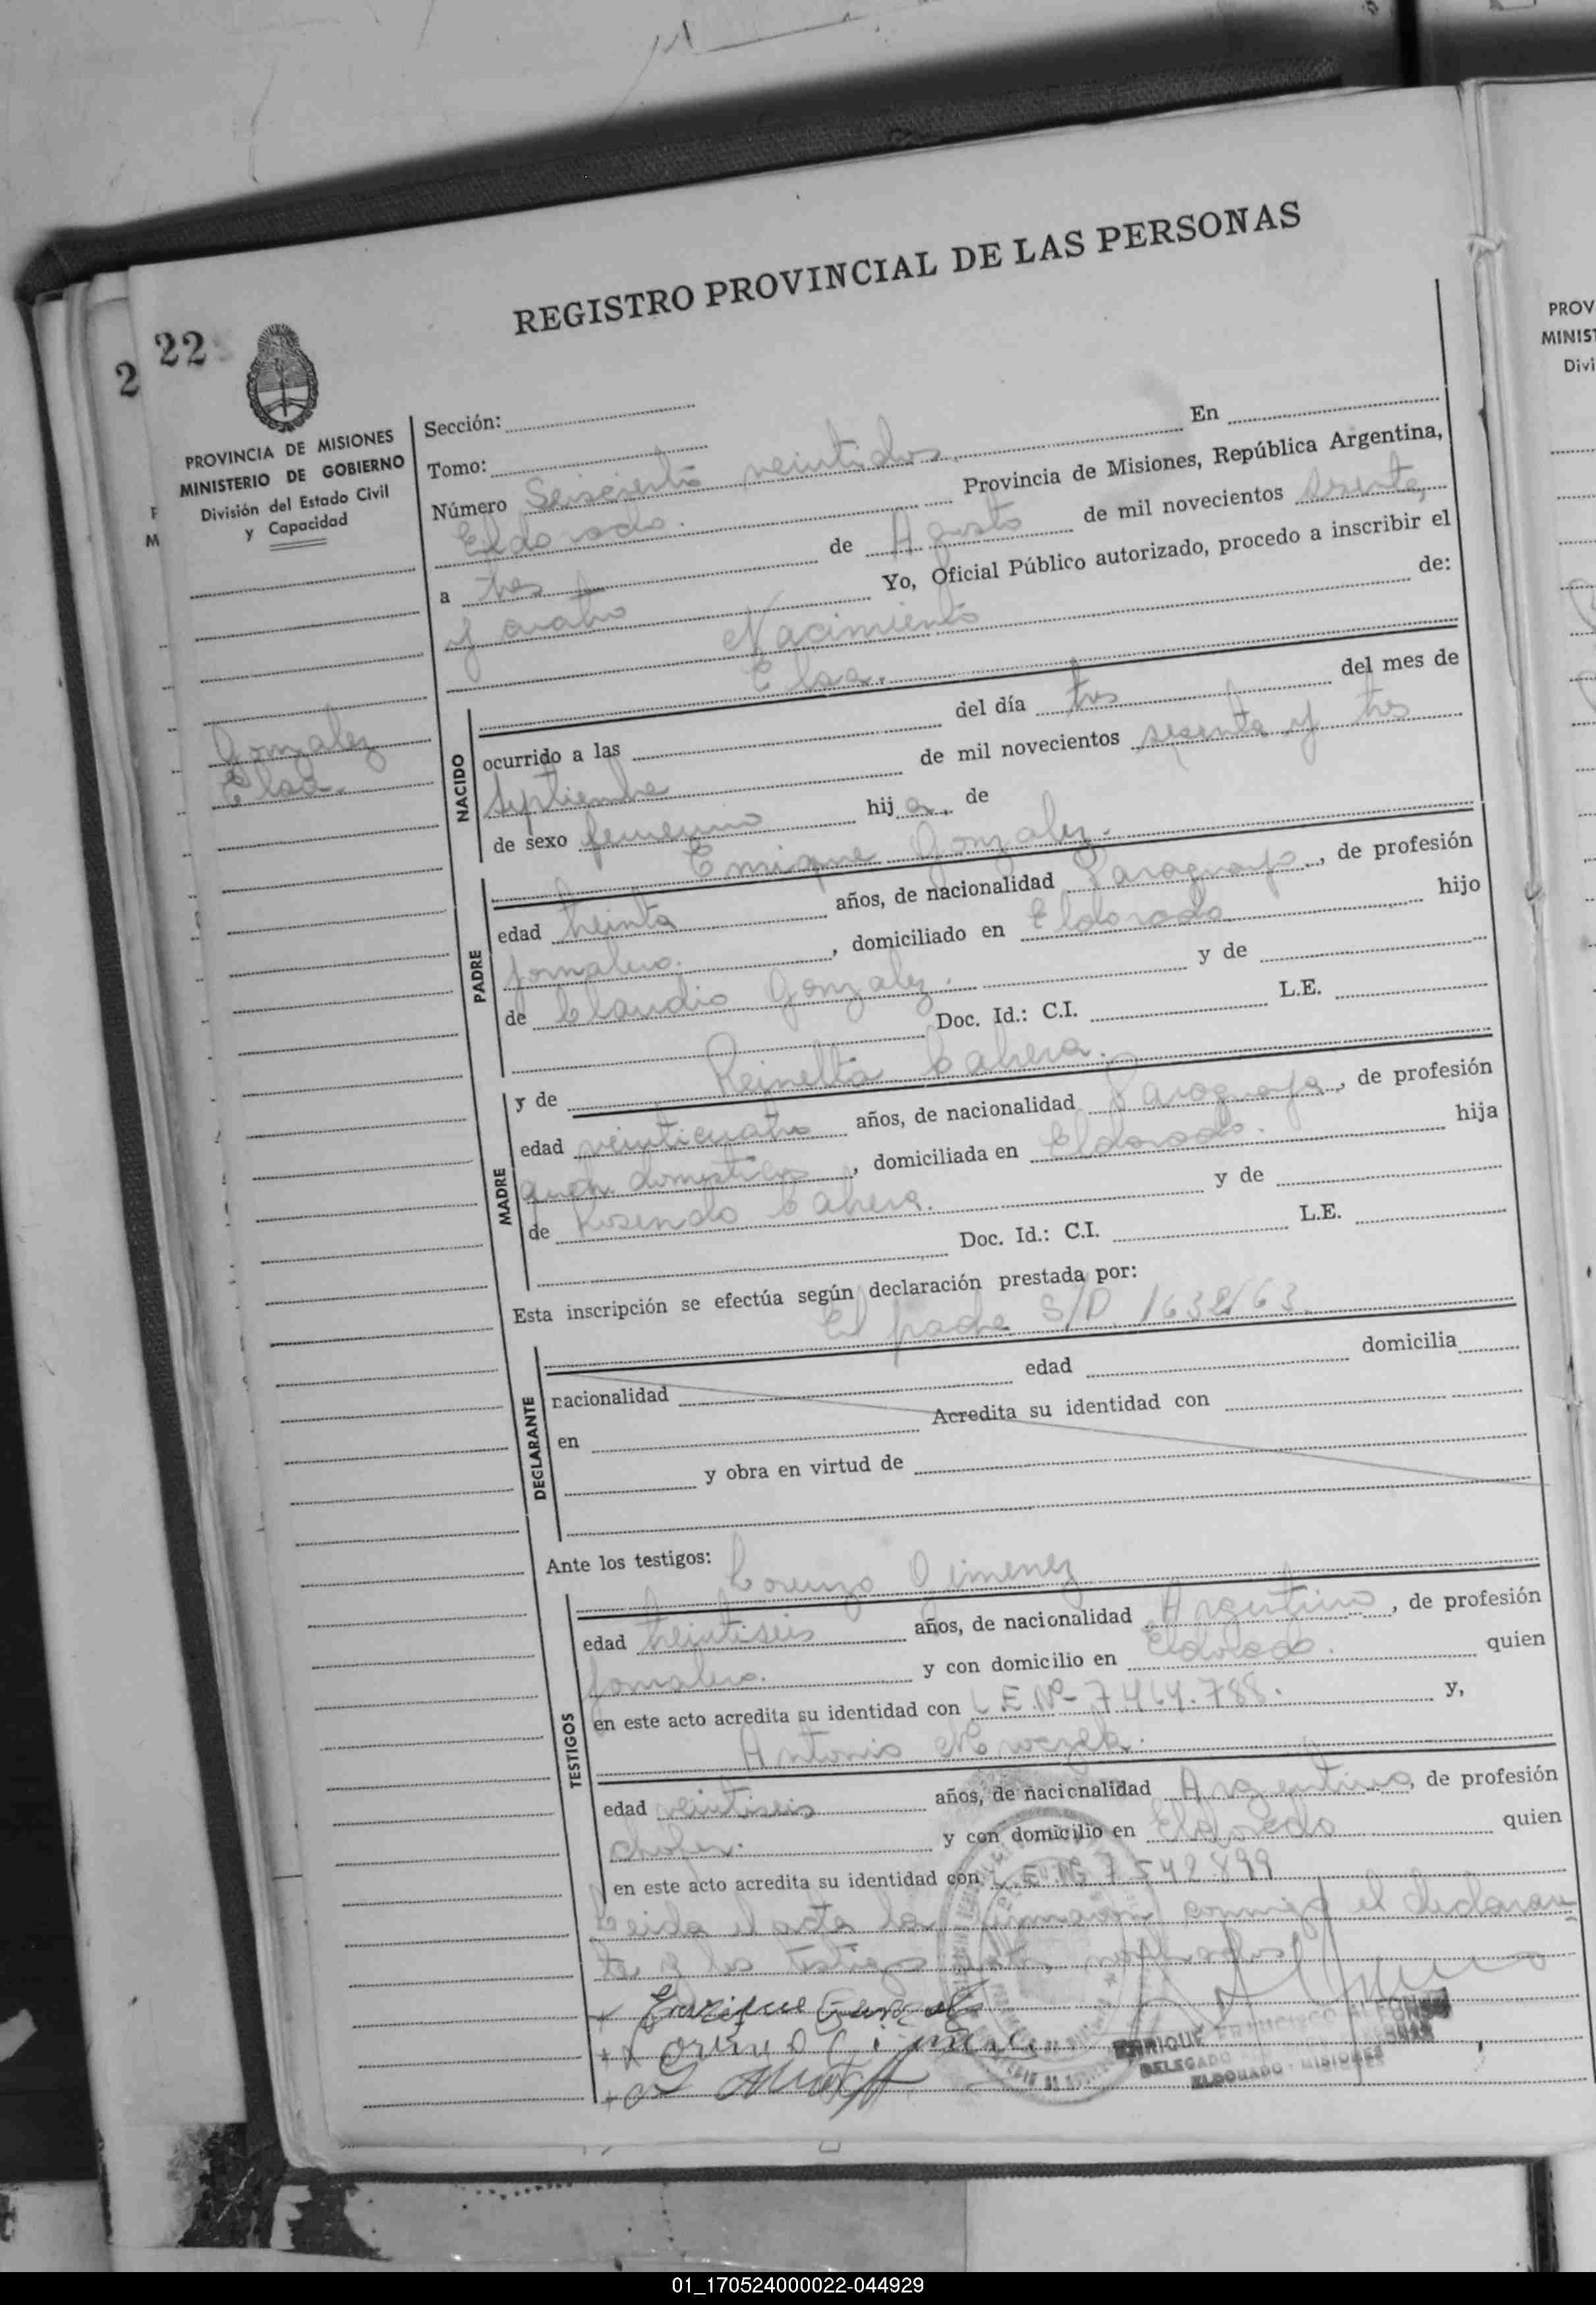 REGISTRO PROVINCIAL DE LAS PERSONAS
22
2
PROVINCIA DE MISIONES
MINISTERIO DE GOBIERNO
División del Estado Civil
y Capacidad
Gonzalez
Elsa.
Sección:
Tomo:
Número Seiscientos veintidos. En
Eldorado. Provincia de Misiones, República Argentina,
a tres de Agosto de mil novecientos sesenta
y cuatro Yo, Oficial Público autorizado, procedo a inscribir el
Nacimiento de:
Elsa.
NACIDO
ocurrido a las del día tres del mes de
Septiembre de mil novecientos sesenta y tres
de sexo femenino hija. de
Enrique Gonzalez.
PADRE
edad treinta años, de nacionalidad Paraguayo, de profesión
jornalero. , domiciliado en Eldorado hijo
de Claudio Gonzalez. y de
Doc. Id.: C.I. L.E.
y de Reinelta Cabrera.
MADRE
edad veinticuatro años, de nacionalidad Paraguaya, de profesión
queh. domesticos, domiciliada en Eldorado. hija
de Rosendo Cabrera. y de
Doc. Id.: C.I. L.E.
Esta inscripción se efectúa según declaración prestada por:
El padre S/D. 1632/63.
DECLARANTE
nacionalidad edad domicilia
en Acredita su identidad con
y obra en virtud de
Ante los testigos:
Lorenzo Gimenez
TESTIGOS
edad treintiseis años, de nacionalidad Argentino, de profesión
jornalero. y con domicilio en Eldorado. quien
en este acto acredita su identidad con L.E.Nº 7464.788. y,
Antonio
edad veintiseis años, de nacionalidad Argentino, de profesión
chofer. y con domicilio en Eldorado quien
en este acto acredita su identidad con L.E.Nº 7542899
Leida el acta la firmaron conmigo el declaran-
te y los testigos nombrados
Enrique Gonzalez
Lorenzo Gimenez
ENRIQUE FRANCISCO ALFONSO
DELEGADO
ELDORADO - MISIONES
PROV
MINIST
Divi
01_170524000022-044929